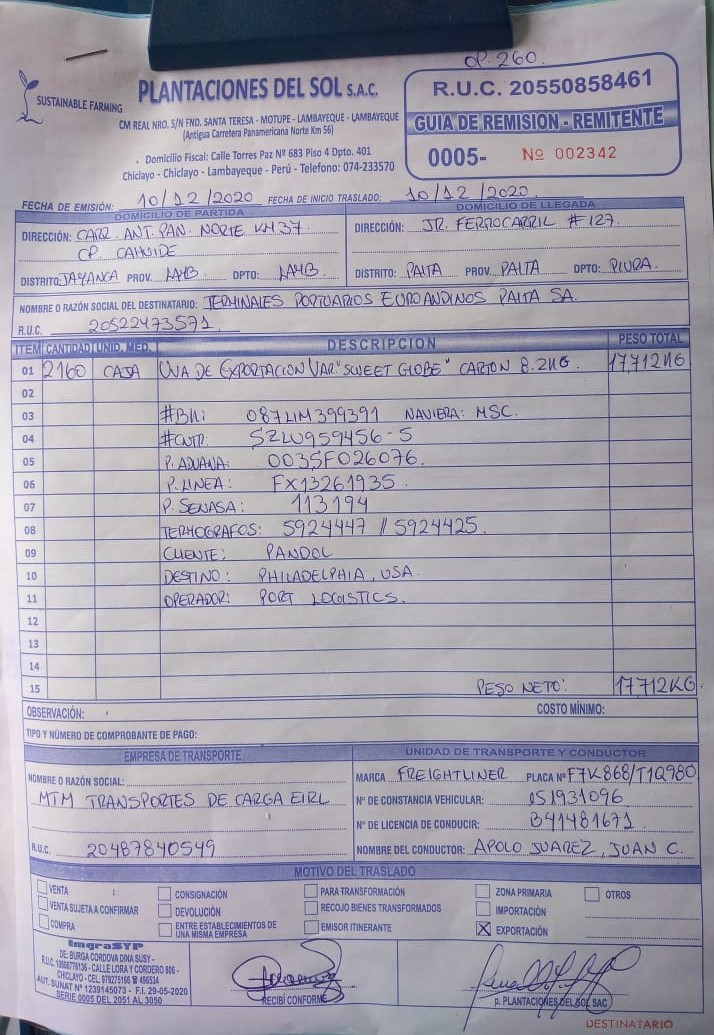 OP. 260.
SUSTAINABLE FARMING
PLANTACIONES DEL SOL S.A.C.
CM REAL NRO. S/N FND. SANTA TERESA - MOTUPE - LAMBAYEQUE - LAMBAYEQUE
(Antigua Carretera Panamericana Norte Km 56)
Domicilio Fiscal: Calle Torres Paz Nº 683 Piso 4 Dpto. 401
Chiclayo - Chiclayo - Lambayeque - Perú - Telefono: 074-233570
R.U.C. 20550858461
GUIA DE REMISION - REMITENTE
0005- Nº 002342
FECHA DE EMISIÓN: 10/12/2020 FECHA DE INICIO TRASLADO: 10/12/2020
DOMICILIO DE PARTIDA
DIRECCIÓN: CARR. ANT. PAN. NORTE KM 37.
CP. CAHUIDE
DISTRITO JAYANCA PROV. LAMB DPTO: LAMB.
DOMICILIO DE LLEGADA
DIRECCIÓN: JR. FERROCARRIL #127.
DISTRITO: PAITA PROV. PAITA DPTO: PIURA.
NOMBRE O RAZÓN SOCIAL DEL DESTINATARIO: TERMINALES PORTUARIOS EUROANDINOS PAITA SA.
R.U.C. 20522473571
ITEM CANTIDAD UNID. MED. DESCRIPCION PESO TOTAL
01 2160 CAJA UVA DE EXPORTACION VAR "SWEET GLOBE" CARTON 8.2KG. 17,712KG
02
03 #BK: 087LIM399391 NAVIERA: MSC.
04 #CNTR: SZLU959456-5
05 P. ADUANA: 0035F026076.
06 P. LINEA: FX13261935.
07 P. SENASA: 113194
08 TERMOGRAFOS: 5924447 // 5924425.
09 CLIENTE: PANDOL
10 DESTINO: PHILADELPHIA, USA
11 OPERADOR: PORT LOGISTICS.
12
13
14
15 PESO NETO: 17,712KG
OBSERVACIÓN: COSTO MÍNIMO:
TIPO Y NÚMERO DE COMPROBANTE DE PAGO:
EMPRESA DE TRANSPORTE
NOMBRE O RAZÓN SOCIAL:
MTM TRANSPORTES DE CARGA EIRL
R.U.C. 20487840549
UNIDAD DE TRANSPORTE Y CONDUCTOR
MARCA FREIGHTLINER PLACA Nº F7K868/T1Q980
Nº DE CONSTANCIA VEHICULAR: 151931096
Nº DE LICENCIA DE CONDUCIR: B41481671
NOMBRE DEL CONDUCTOR: APOLO JUAREZ, JUAN C.
MOTIVO DEL TRASLADO
VENTA
VENTA SUJETA A CONFIRMAR
COMPRA
CONSIGNACIÓN
DEVOLUCIÓN
ENTRE ESTABLECIMIENTOS DE
UNA MISMA EMPRESA
PARA TRANSFORMACIÓN
RECOJO BIENES TRANSFORMADOS
EMISOR ITINERANTE
ZONA PRIMARIA
IMPORTACIÓN
X EXPORTACIÓN
OTROS
ImgraSYP
DE: BURGA CORDOVA DINA SUSY -
CALLE LORA Y CORDERO 806 -
CHICLAYO - CEL. 979275166
AUT. SUNAT Nº 1239145073 - F.I. 29-05-2020
SERIE 0005 DEL 2051 AL 3050
RECIBÍ CONFORME
p. PLANTACIONES DEL SOL SAC
DESTINATARIO